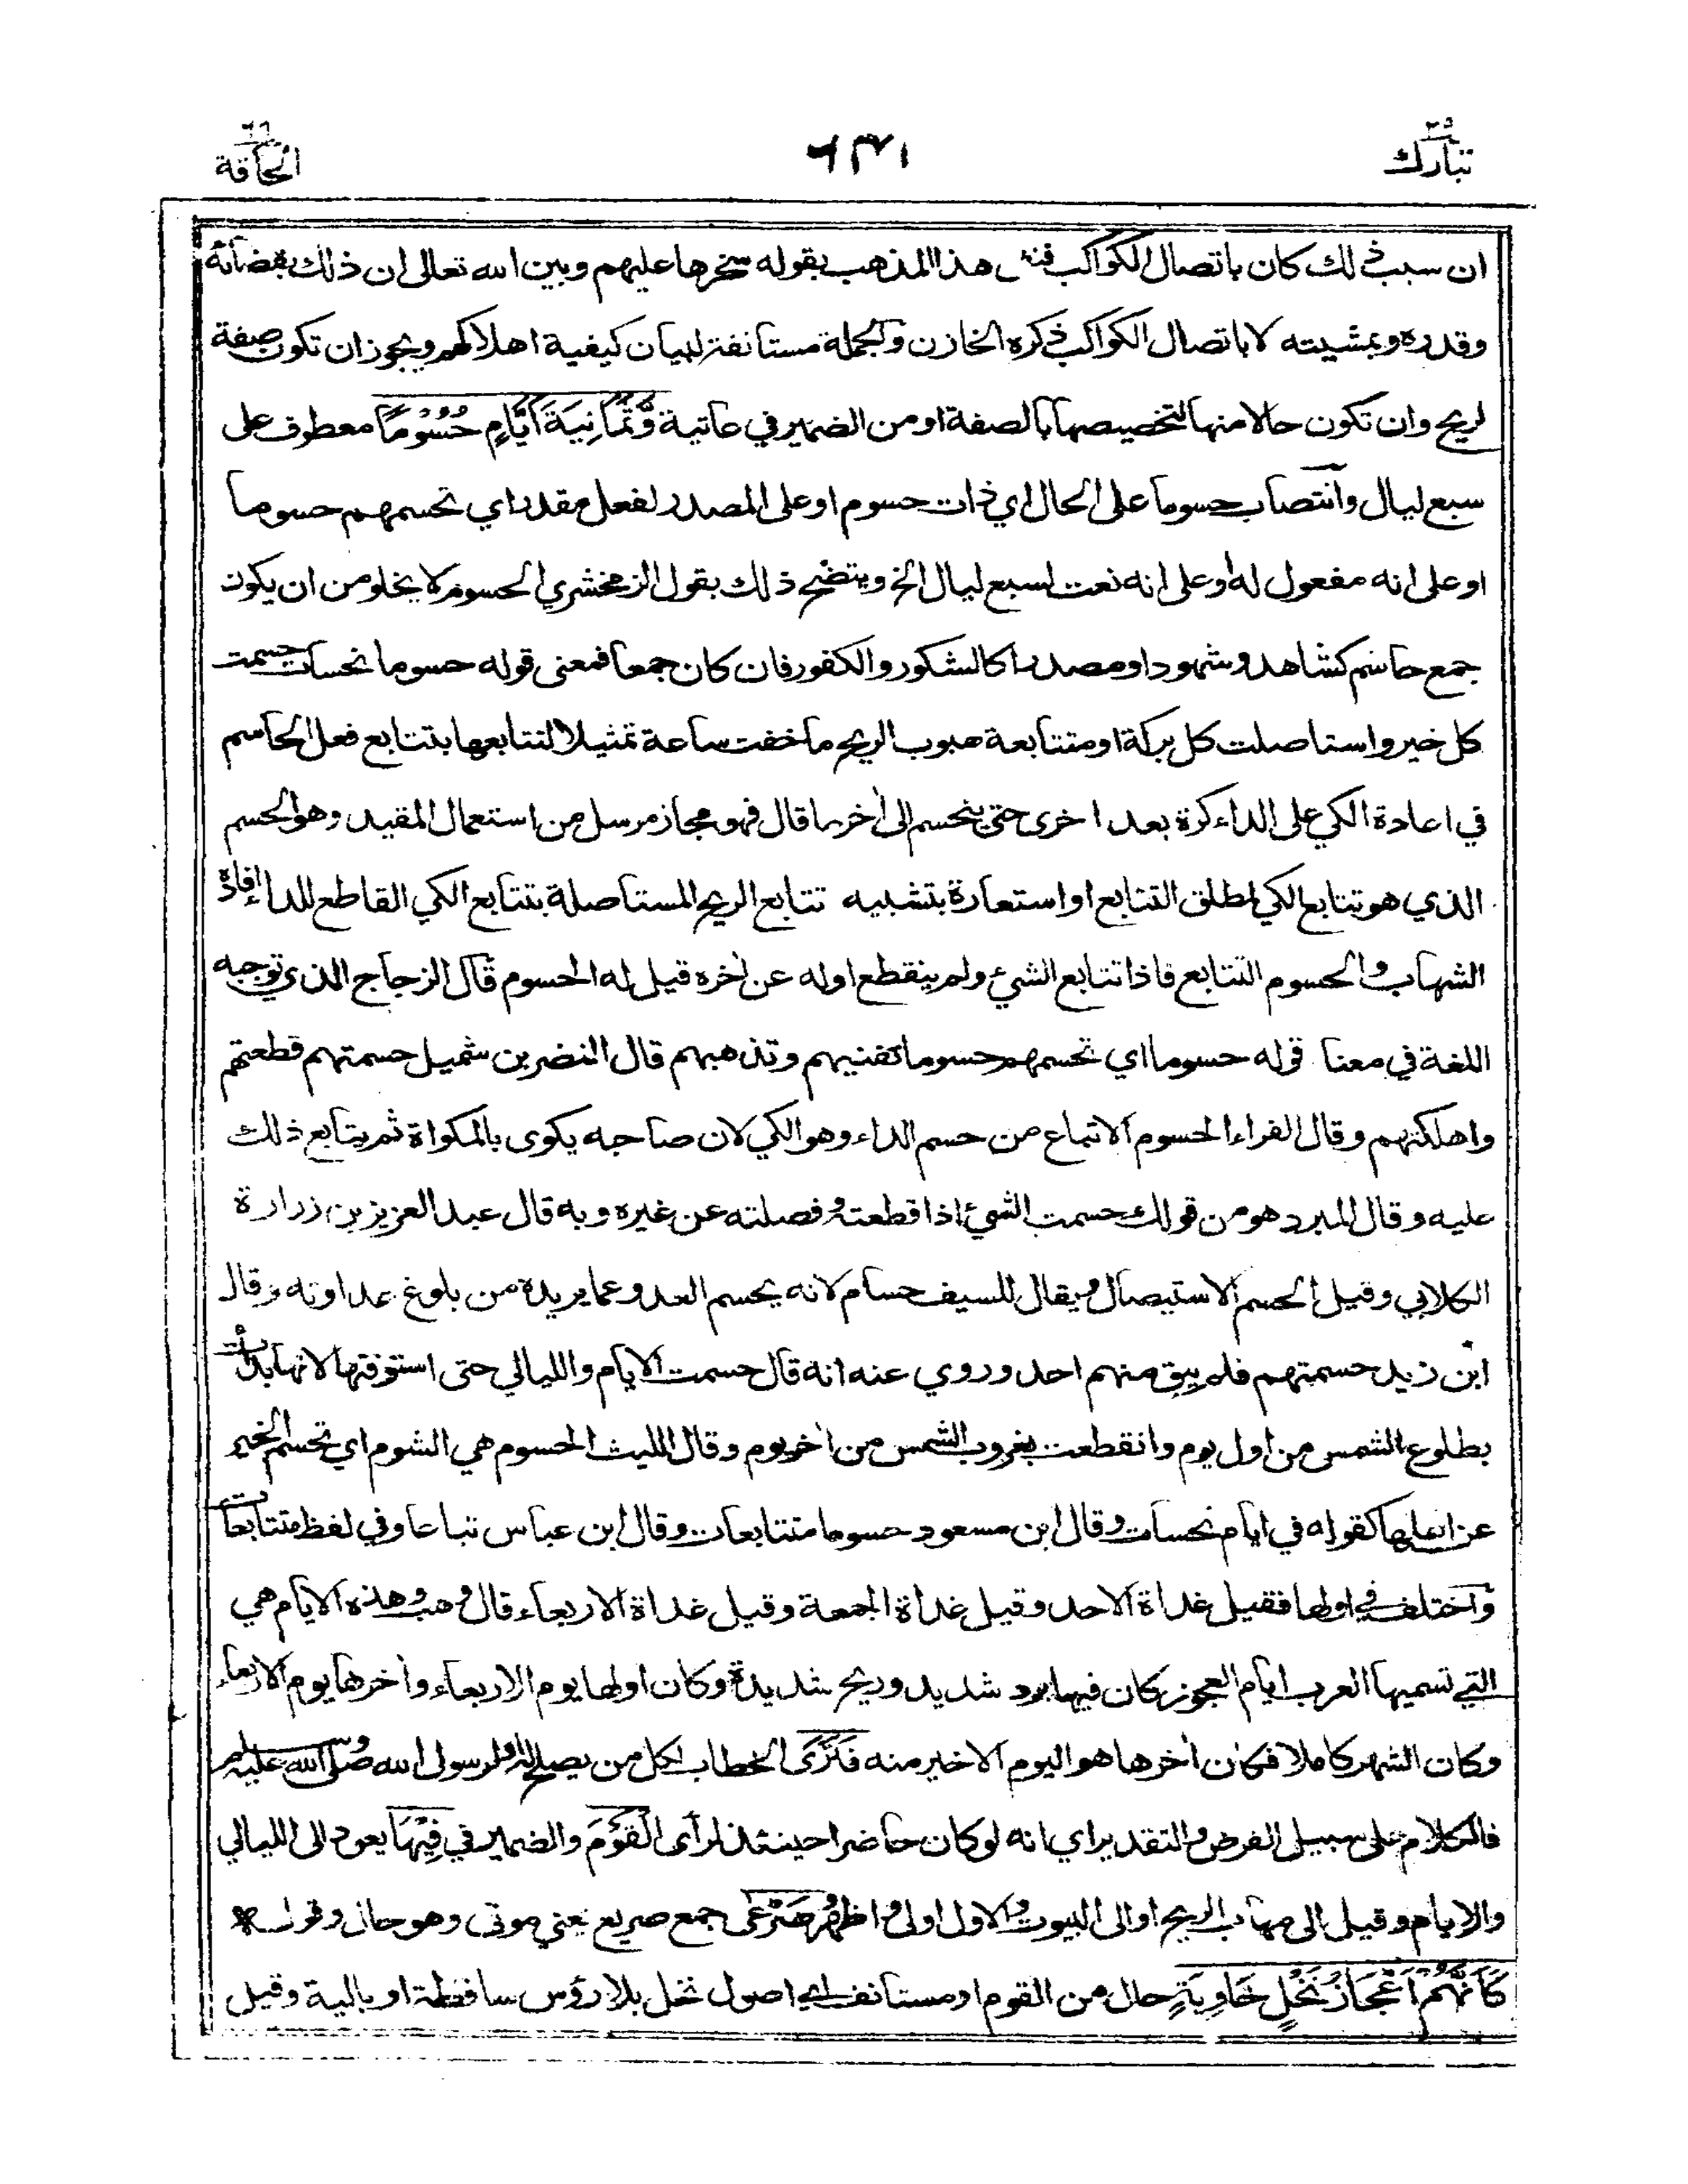 تبارك ٢٩
الحاقة ٦٩
ان سبب ذلك كان باتصال الكواكب هذا المذهب بقوله سخرها عليهم وبين الله تعالى ان ذلك بقضائه
وقدره وبمشيته لا باتصال الكواكب ذكره الخازن والجملة مستانفة لبيان كيفية اهلاكهم ويجوز ان تكون صفة
لريح وان تكون حالا منها لتخصيصها بالصفة او من الضمير في عاتية وَّثَمَانِيَةَ اَيَّامٍ حُسُوْمًا معطوف على
سبع ليال وانتصاب حسوما على الحال اي ذات حسوم او على المصدر لفعل مقدر اي تحسمهم حسوما
او على انه مفعول له او على انه نعت لسبع ليال الخ ويتضح ذلك بقول الزمخشري الحسوم لا يخلو من ان يكون
جمع حاسم كشاهد وشهود او مصدرا كالشكور والكفور فان كان جمعا فمعنى قوله حسوما نحسات حسمت
كل خير واستاصلت كل بركة او متتابعة هبوب الريح ما خفت ساعة تمثيلا لتتابعها بتتابع فعل الحاسم
في اعادة الكي على الداء كرة بعد اخرى حتى ينحسم الى اخر ما قال فهو مجاز مرسل من استعمال المقيد وهو الحسم
الذي هو تتابع الكي لمطلق التتابع او استعارة بتشبيه تتابع الريح المستاصلة بتتابع الكي القاطع للداء افاده
الشهاب والحسوم التتابع فاذا تتابع الشيء ولم ينقطع اوله عن اخره قيل له الحسوم قال الزجاج الذي توجبه
اللغة في معنا قوله حسوما اي تحسمهم حسوما تفنيهم وتذهبهم قال النضر بن شميل حسمتهم قطعتهم
واهلكتهم وقال الفراء الحسوم الاتباع من حسم الداء وهو الكي لان صاحبه يكوى بالمكواة ثم يتابع ذلك
عليه وقال المبرد هو من قولك حسمت الشيء اذا قطعته وفصلته عن غيره وبه قال عبد العزيز بن زرارة
الكلابي وقيل الحسم الاستيصال ويقال للسيف حسام لانه يحسم العدو عما يريده من بلوغ عداوته وقال
ابن زيد حسمتهم فلم يبق منهم احد وروي عنه انه قال حسمت الايام والليالي حتى استوفتها لانها بدأت
بطلوع الشمس من اول يوم وانقطعت بغروب الشمس من اخر يوم وقال الليث الحسوم هي الشوم اي تحسم الخير
عن اهلها كقوله في ايام نحسات وقال ابن مسعود حسوما متتابعات وقال ابن عباس تباعا وفي لفظ متتابعات
واختلف في اولها فقيل غداة الاحد وقيل غداة الجمعة وقيل غداة الاربعاء قال وهب وهذه الايام هي
التي تسميها العرب ايام العجوز كان فيها برد شديد وريح شديدة وكان اولها يوم الاربعاء واخرها يوم الاربعاء
وكان الشهر كاملا فكان اخرها هو اليوم الاخير منه فَتَرَى الخطاب لكل من يصلح له او لرسول الله صلى الله عليه وسلم
فالكلام على سبيل الفرض والتقدير اي انه لو كان حاضرا حينئذ لرأى الْقَوْمَ والضمير في فِيْهَا يعود الى الليالي
والايام وقيل الى مهاب الريح او الى البيوت والاول اولى واظهر صَرْعٰى جمع صريع يعني موتى وهو حال وقوله
كَاَنَّهُمْ اَعْجَازُ نَخْلٍ خَاوِيَةٍ حال من القوم او مستانف اي اصول نخل بلا رؤس ساقطة او بالية وقيل